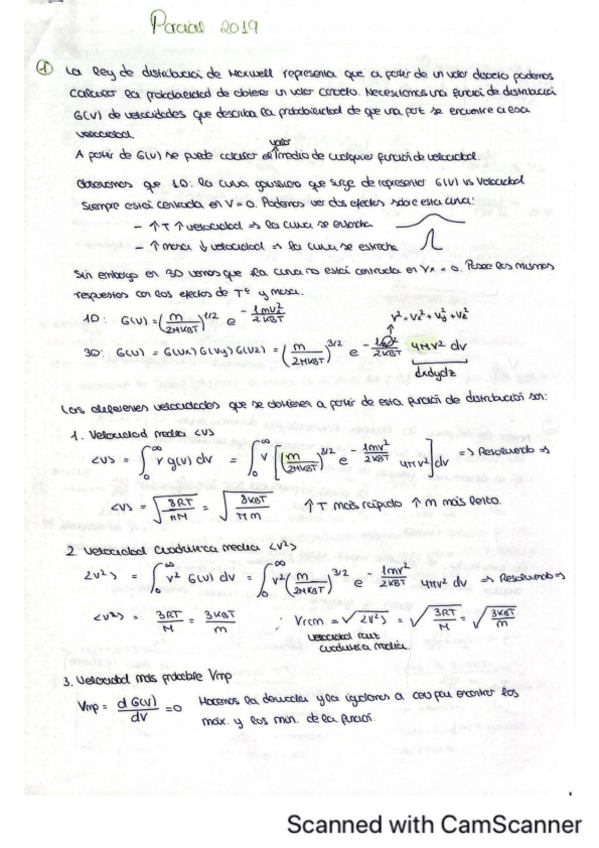 Parcial 2019
① La ley de distribución de Maxwell representa que a partir de un valor discreto podemos
calcular la probabilidad de obtener un valor concreto. Necesitamos una función de distribución
G(v) de velocidades que describa la probabilidad de que una part. se encuentre a esa
velocidad.
A partir de G(v) se puede calcular el valor medio de cualquier función de velocidad.
Observamos que 1D: la curva gaussiana que surge de representar G(v) vs Velocidad
siempre está centrada en V = 0. Podemos ver dos efectos sobre esta curva:
- ↑T ↑velocidad ⇒ la curva se ensancha
- ↑masa ↓velocidad ⇒ la curva se estrecha
Sin embargo en 3D vemos que la curva no está centrada en Vx = 0. Posee las mismas
respuestas con los efectos de Tª y masa.
1D: G(v) = (m/2πKBT)^1/2 e^-1mv²/2KBT
v² = vx² + vy² + vz²
3D: G(v) = G(vx) G(vy) G(vz) = (m/2πKBT)^3/2 e^-1mv²/2KBT 4πv² dv
dxdydz
Las diferentes velocidades que se obtienen a partir de esta función de distribución son:
1. Velocidad media <v>
<v> = ∫₀^∞ v g(v) dv = ∫₀^∞ v [(m/2πKBT)^3/2 e^-1mv²/2KBT 4πv²] dv ⇒ Resolviendo ⇒
<v> = √8RT/πM = √8KBT/πm ↑T más rápido ↑m más lento.
2. Velocidad cuadrática media <v²>
<v²> = ∫₀^∞ v² G(v) dv = ∫₀^∞ v² (m/2πKBT)^3/2 e^-1mv²/2KBT 4πv² dv ⇒ Resolviendo ⇒
<v²> = 3RT/M = 3KBT/m ; Vrcm = √<v²> = √3RT/M = √3KBT/m
velocidad raíz
cuadrática media.
3. Velocidad más probable Vmp
Vmp = d G(v)/dv = 0 Hacemos la derivada y la igualamos a cero para encontrar los
máx. y los mín. de la función.
Scanned with CamScanner